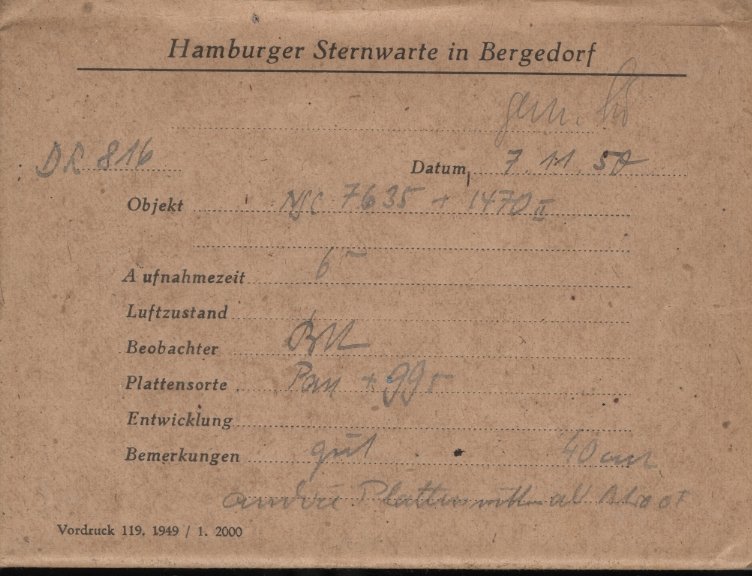 Hamburger Sternwarte in Bergedorf
DR 816
Datum 7.11.50
Objekt NGC 7635 + 1470 II
Aufnahmezeit 6
Luftzustand
Beobachter
Plattensorte Pan + 99
Entwicklung
Bemerkungen gut 40 cm
andere Platten
Vordruck 119. 1949 / 1. 2000